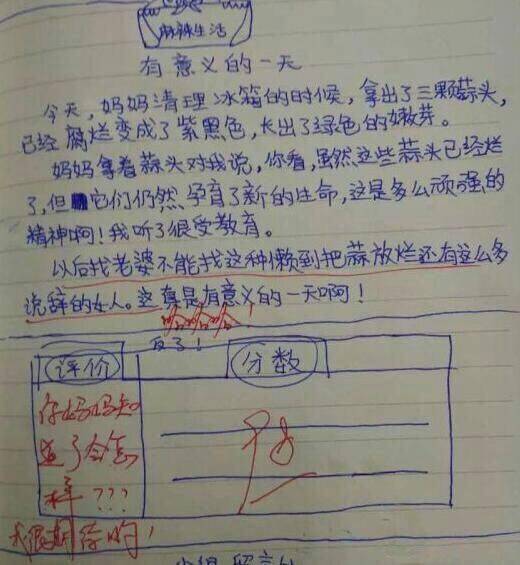 麻辣生活
有意义的一天
今天，妈妈清理冰箱的时候，拿出了三颗蒜头，
已经腐烂变成了紫黑色，长出了绿色的嫩芽。
妈妈拿着蒜头对我说，你看，虽然这些蒜头已经烂
了，但它们仍然孕育了新的生命，这是多么顽强的
精神啊！我听了很受教育。
以后找老婆不能找这种懒到把蒜放烂还有这么多
说辞的女人。这真是有意义的一天啊！
哈哈哈！
反了！
评价
分数
你妈妈知
道了会怎
样???
我很期待哟！
优